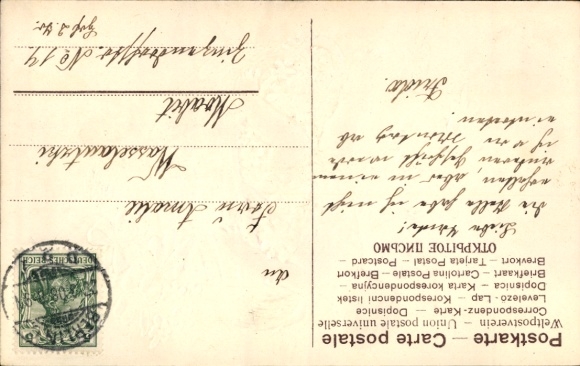 Postkarte — Carte postale
Weltpostverein — Union postale universelle
Correspondenz-Karte — Dopisnice
Levelező-Lap — Korespondencni listek
Dopisnica — Karta korespondencyjna
Briefkaart — Cartolina Postale — Brefkort
Brevkort — Tarjeta Postal — Postcard
ОТКРЫТОЕ ПИСЬМО
Liebe
die Stelle habe ich nicht
erhalten, aber in einem
anderen Geschäft werde
ich von Montag ab
eintreten
Frida.
An
Amalie
Wasselautzki
Moabit
No 14
DEUTSCHES REICH
BERLIN